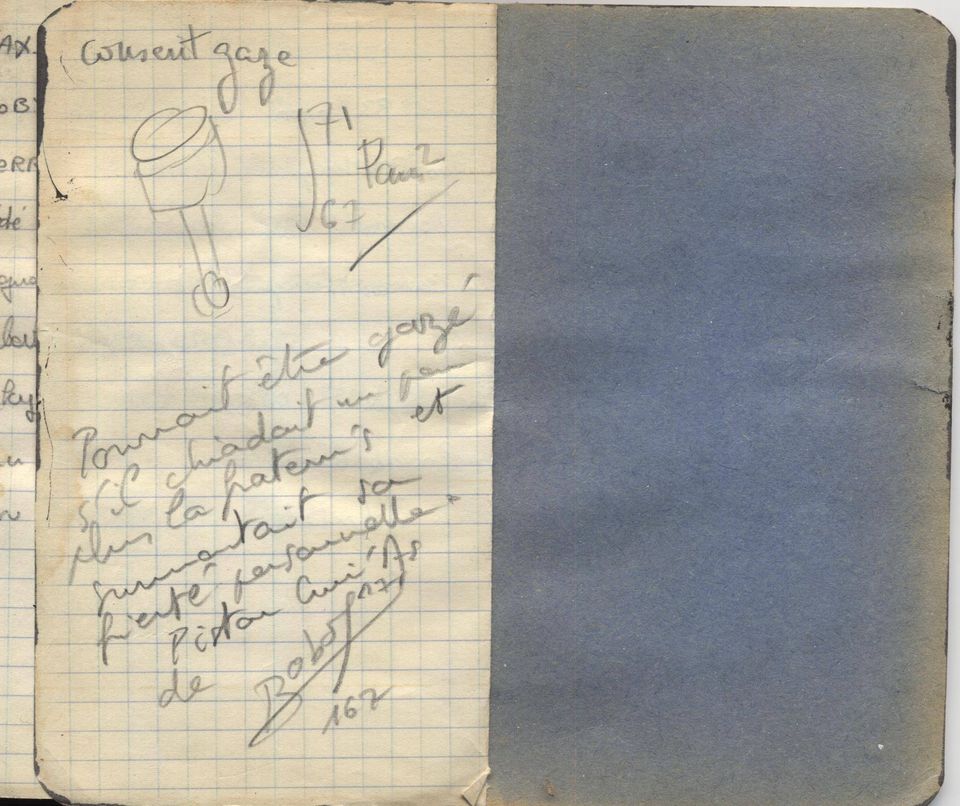 AX
OB
ERR
dé
Consent gaze
71
67
Pourrait être gazé
s'il chiadait un peu
plus la fratern's et
surmontait sa
fierté personnelle.
Piston Ciré As
de
Bobs
171
167